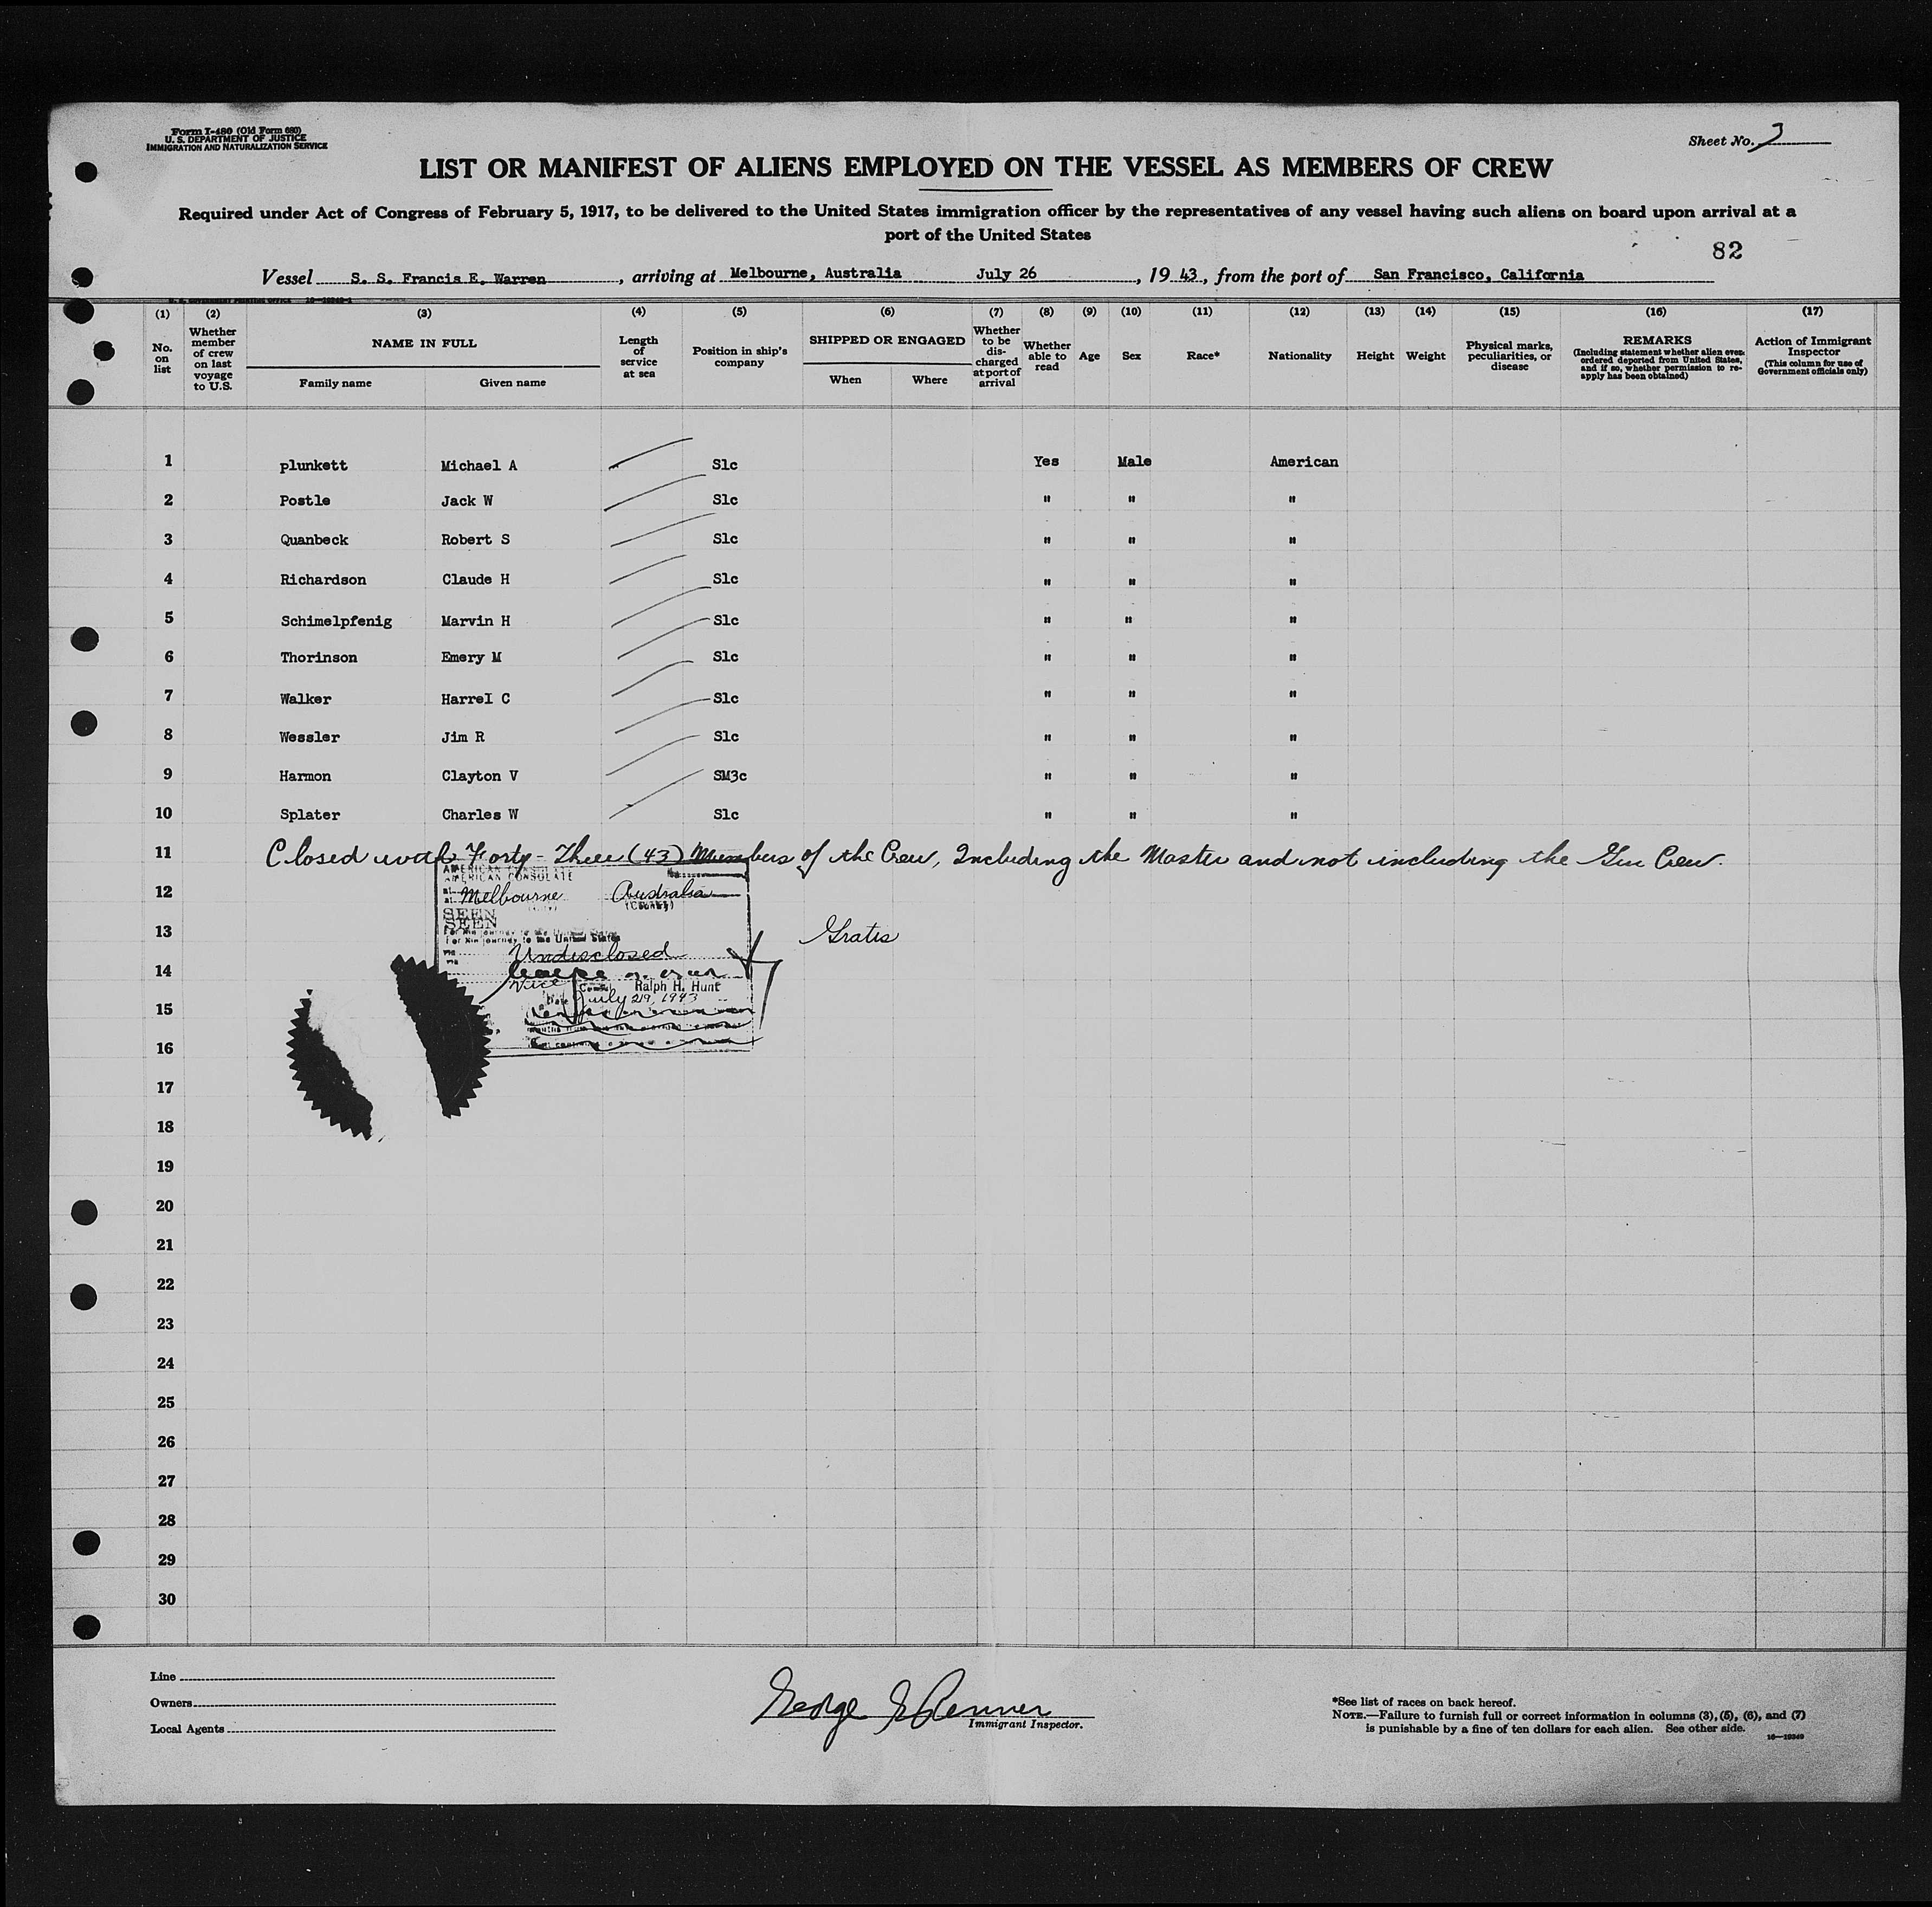 Form I-480 (Old Form 680)
U. S. DEPARTMENT OF JUSTICE
IMMIGRATION AND NATURALIZATION SERVICE
Sheet No. 3
LIST OR MANIFEST OF ALIENS EMPLOYED ON THE VESSEL AS MEMBERS OF CREW
Required under Act of Congress of February 5, 1917, to be delivered to the United States immigration officer by the representatives of any vessel having such aliens on board upon arrival at a
port of the United States
82
Vessel S. S. Francis E. Warren, arriving at Melbourne, Australia July 26, 1943, from the port of San Francisco, California
(1) (2) (3) (4) (5) (6) (7) (8) (9) (10) (11) (12) (13) (14) (15) (16) (17)
No. on list
Whether member of crew on last voyage to U.S.
NAME IN FULL
Family name Given name
Length of service at sea
Position in ship's company
SHIPPED OR ENGAGED
When Where
Whether to be discharged at port of arrival
Whether able to read
Age
Sex
Race*
Nationality
Height
Weight
Physical marks, peculiarities, or disease
REMARKS
(Including statement whether alien ever ordered deported from United States, and if so, whether permission to reapply has been obtained)
Action of Immigrant Inspector
(This column for use of Government officials only)
1 plunkett Michael A S1c Yes Male American
2 Postle Jack W S1c " " "
3 Quanbeck Robert S S1c " " "
4 Richardson Claude H S1c " " "
5 Schimelpfenig Marvin H S1c " " "
6 Thorinson Emery M S1c " " "
7 Walker Harrel C S1c " " "
8 Wessler Jim R S1c " " "
9 Harmon Clayton V SM3c " " "
10 Splater Charles W S1c " " "
11 Closed with Forty-Three (43) Members of the Crew, Including the Master and not including the Gun Crew.
AMERICAN CONSULATE
12 at Melbourne Australia
(Country)
SEEN
13 Gratis
For the journey to the United States
via Undisclosed
14
Vice Consul Ralph H. Hunt
Date July 29, 1943
15
16
17
18
19
20
21
22
23
24
25
26
27
28
29
30
Line
Owners
Local Agents
George E Renner
Immigrant Inspector.
*See list of races on back hereof.
NOTE.—Failure to furnish full or correct information in columns (3), (5), (6), and (7)
is punishable by a fine of ten dollars for each alien. See other side.
16—19349